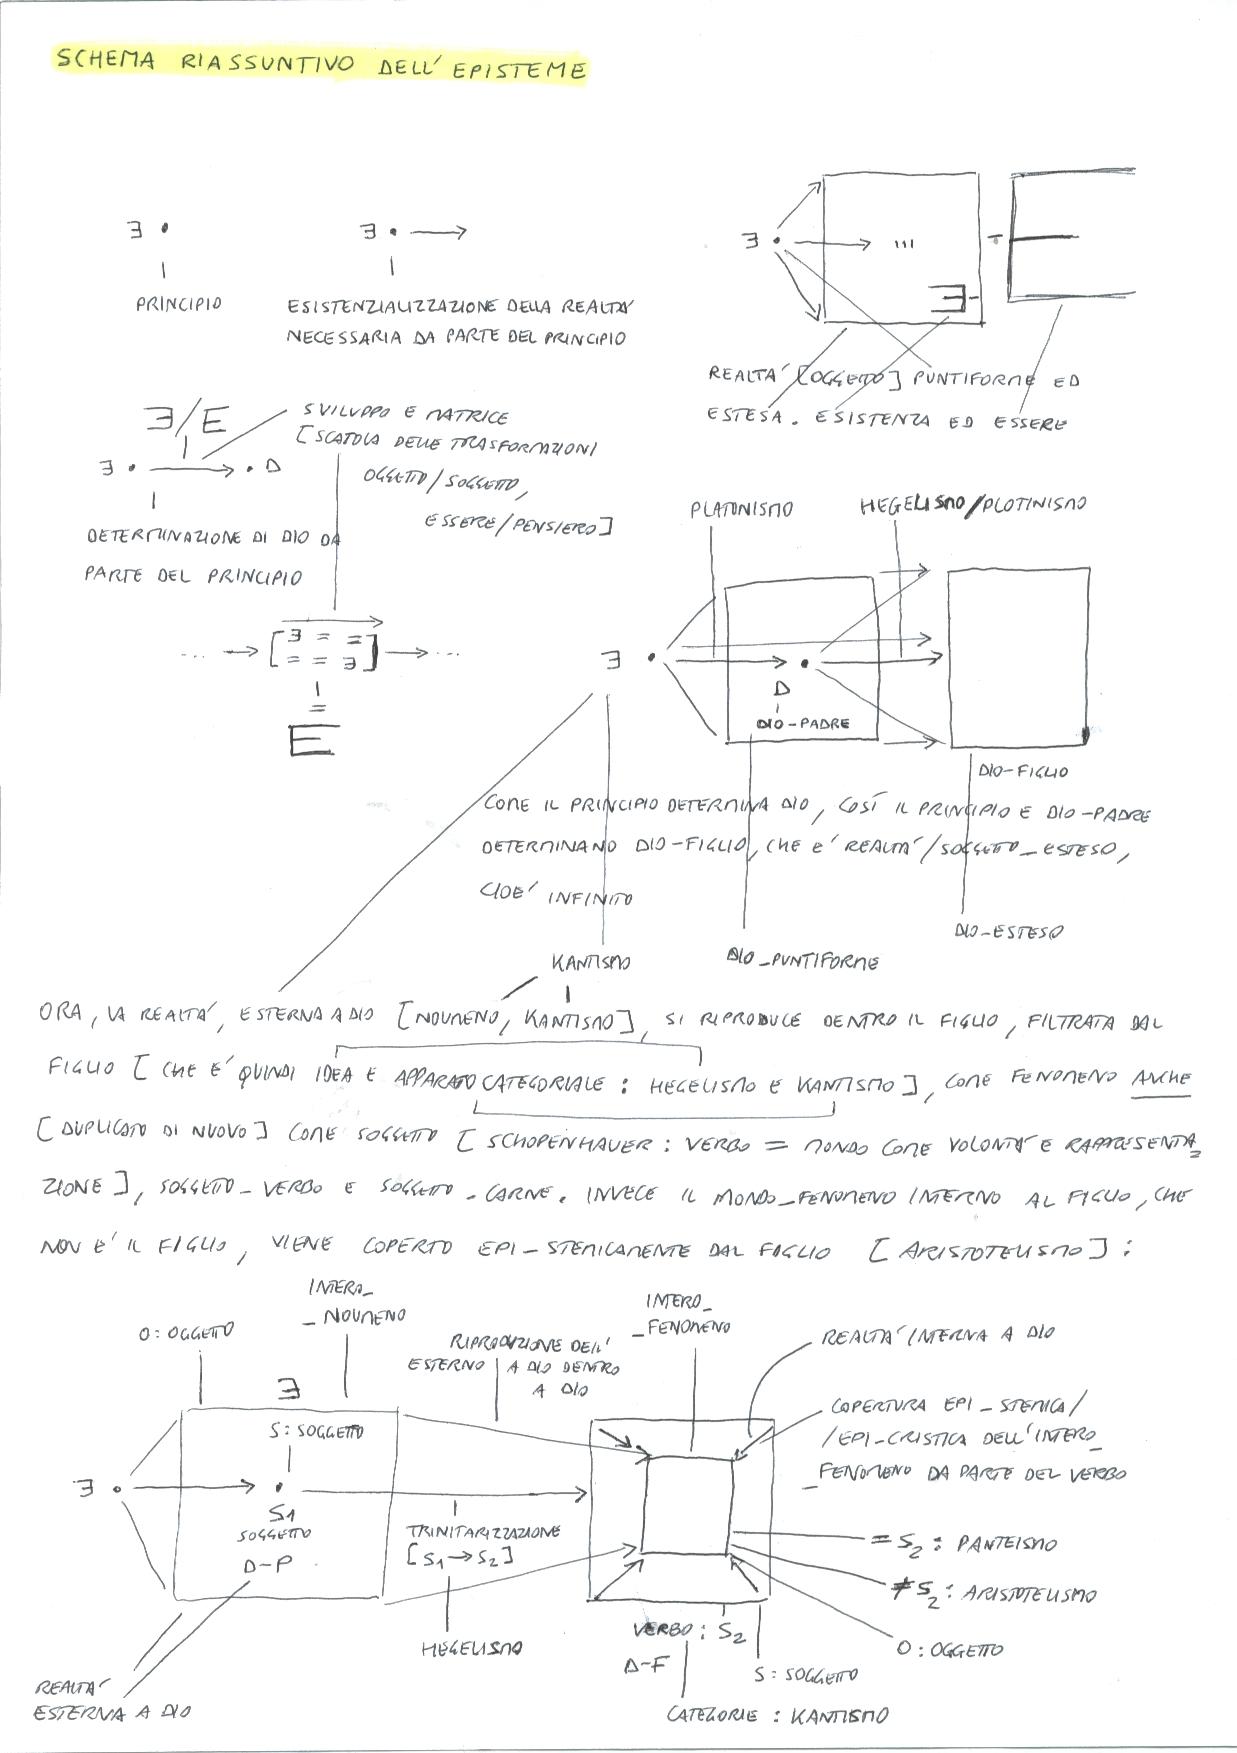 SCHEMA RIASSUNTIVO DELL'EPISTEME
∃ •
PRINCIPIO
∃ •
ESISTENZIALIZZAZIONE DELLA REALTA'
NECESSARIA DA PARTE DEL PRINCIPIO
∃ • ...
∃-
- E
REALTA' [OGGETTO] PUNTIFORME ED
ESTESA. ESISTENZA ED ESSERE
∃/E
∃ • → • D
SVILUPPO E MATRICE
[SCATOLA DELLE TRASFORMAZIONI
OGGETTO/SOGGETTO,
ESSERE/PENSIERO]
DETERMINAZIONE DI DIO DA
PARTE DEL PRINCIPIO
... → [∃ = =
= = ∃] → ...
=
E
PLATONISMO
HEGELISMO/PLOTINISMO
∃ •
D
DIO-PADRE
DIO-FIGLIO
COME IL PRINCIPIO DETERMINA DIO, COSÌ IL PRINCIPIO E DIO-PADRE
DETERMINANO DIO-FIGLIO, CHE E' REALTA'/SOGGETTO_ESTESO,
CIOE' INFINITO
DIO-ESTESO
KANTISMO
DIO_PUNTIFORME
ORA, LA REALTA', ESTERNA A DIO [NOUMENO, KANTISMO], SI RIPRODUCE DENTRO IL FIGLIO, FILTRATA DAL
FIGLIO [CHE E' QUINDI IDEA E APPARATO CATEGORIALE : HEGELISMO E KANTISMO], COME FENOMENO ANCHE
[DUPLICATO DI NUOVO] COME SOGGETTO [SCHOPENHAUER : VERBO = MONDO COME VOLONTA' E RAPPRESENTA_
ZIONE], SOGGETTO-VERBO E SOGGETTO-CARNE. INVECE IL MONDO_FENOMENO INTERNO AL FIGLIO, CHE
NON E' IL FIGLIO, VIENE COPERTO EPI-STEMICAMENTE DAL FIGLIO [ARISTOTELISMO] :
O : OGGETTO
INTERO_
_NOUMENO
RIPRODUZIONE DELL'
ESTERNO A DIO DENTRO
A DIO
INTERO_
_FENOMENO
REALTA' INTERNA A DIO
COPERTURA EPI-STEMICA/
/EPI-CRISTICA DELL'INTERO_
_FENOMENO DA PARTE DEL VERBO
∃
S : SOGGETTO
∃ •
S1
SOGGETTO
D-P
TRINITARIZZAZIONE
[S1→S2]
HEGELISMO
= S2 : PANTEISMO
≠ S2 : ARISTOTELISMO
O : OGGETTO
VERBO : S2
D-F
S : SOGGETTO
CATEGORIE : KANTISMO
REALTA'
ESTERNA A DIO